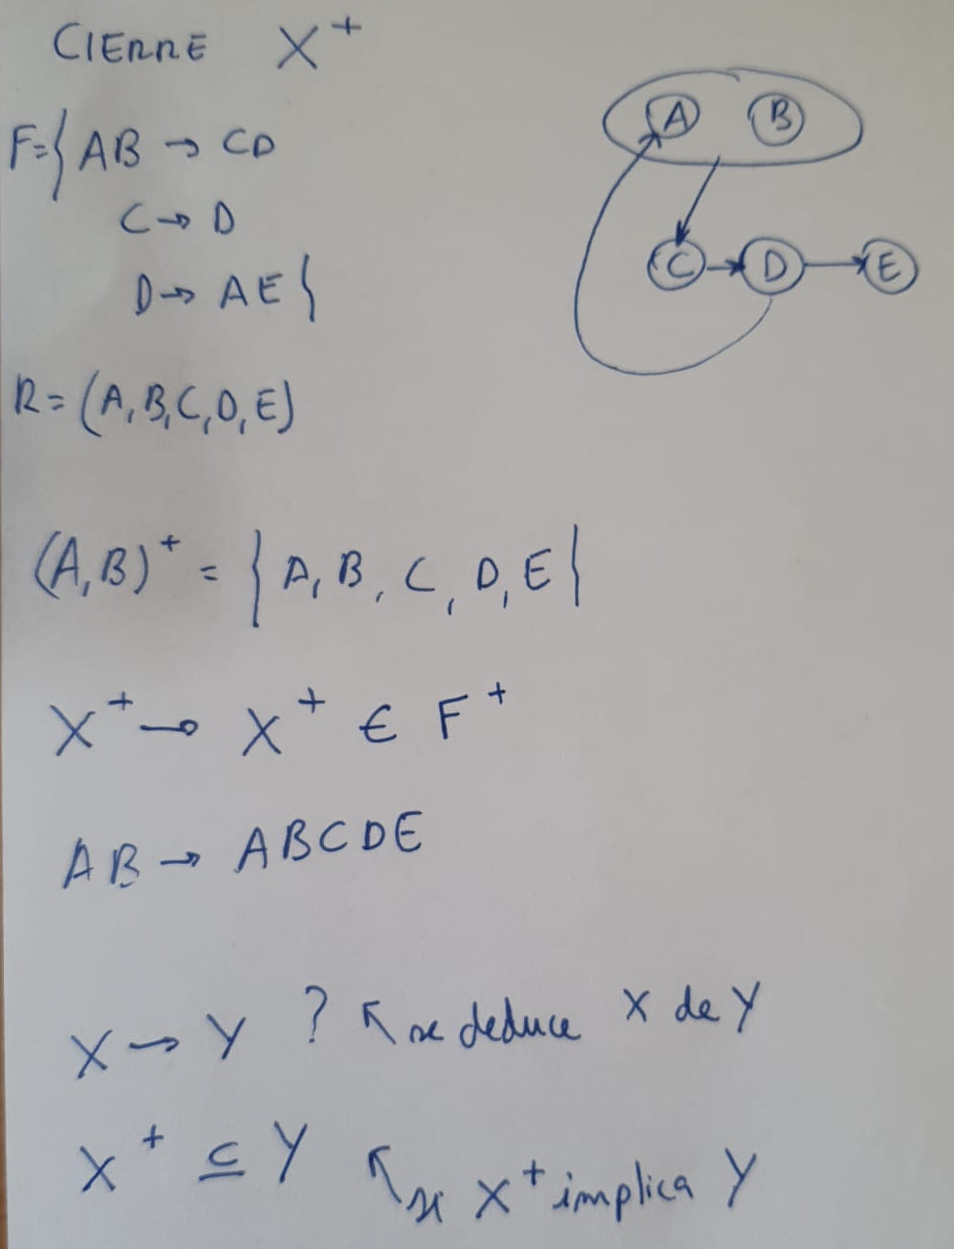 CIERRE X⁺
F={ AB → CD
C → D
D → AE }
R = (A, B, C, D, E)
A B
C D E
(A, B)⁺ = { A, B, C, D, E }
X⁺ → X⁺ ∈ F⁺
AB → ABCDE
X → Y ? ↖ se deduce X de Y
X⁺ ⊆ Y ↖ si X⁺ implica Y